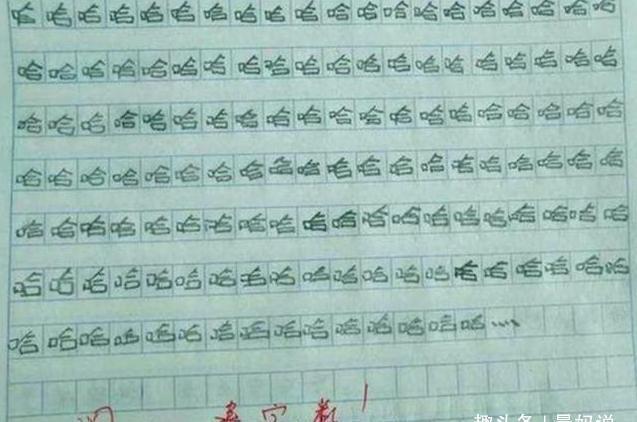 哈哈哈哈哈哈哈哈哈哈哈哈哈哈哈哈哈哈哈哈
哈哈哈哈哈哈哈哈哈哈哈哈哈哈哈哈哈哈哈哈
哈哈哈哈哈哈哈哈哈哈哈哈哈哈哈哈哈哈哈哈
哈哈哈哈哈哈哈哈哈哈哈哈哈哈哈哈哈哈哈哈
哈哈哈哈哈哈哈哈哈哈哈哈哈哈哈哈哈哈哈哈
哈哈哈哈哈哈哈哈哈哈哈哈哈哈哈哈哈哈哈哈
哈哈哈哈哈哈哈哈哈哈哈哈哈哈哈····
字数!